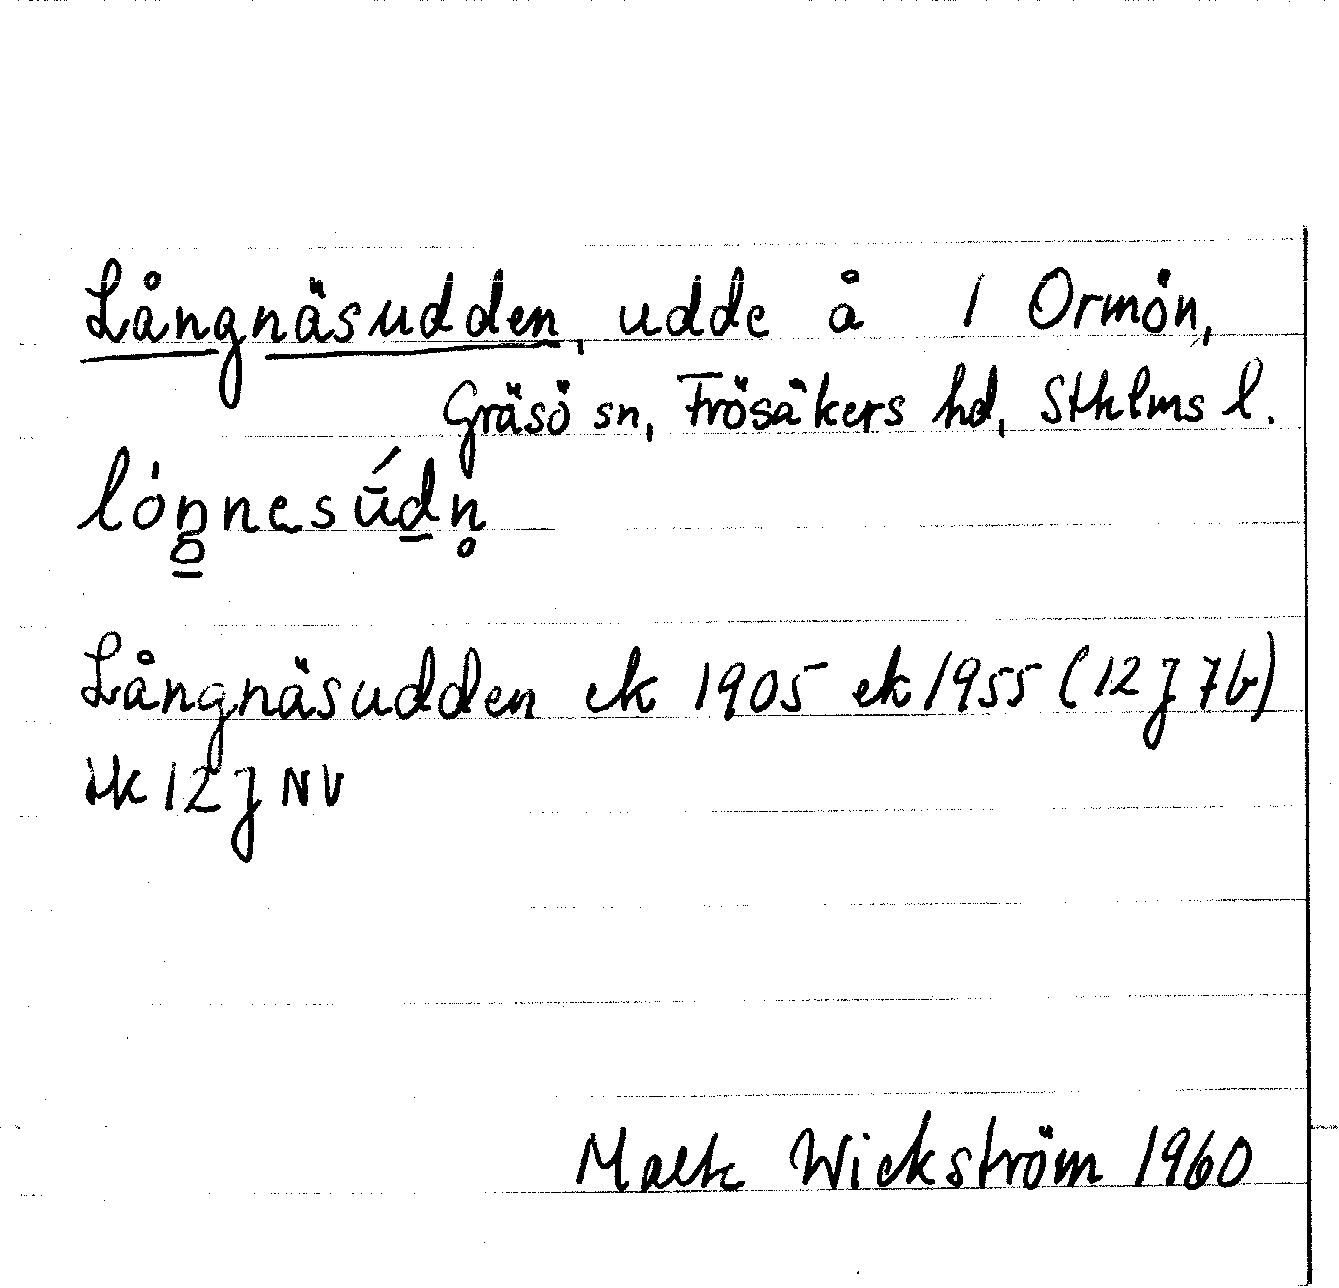 Långnäsudden, udde å 1 Ormön,
Gräsö sn, Frösåkers hd, Sthlms l.
lóŋnesū́dn̥
Långnäsudden ek 1905 ek 1955 (12 J 7b)
tk 12 J NV
Wickström 1960